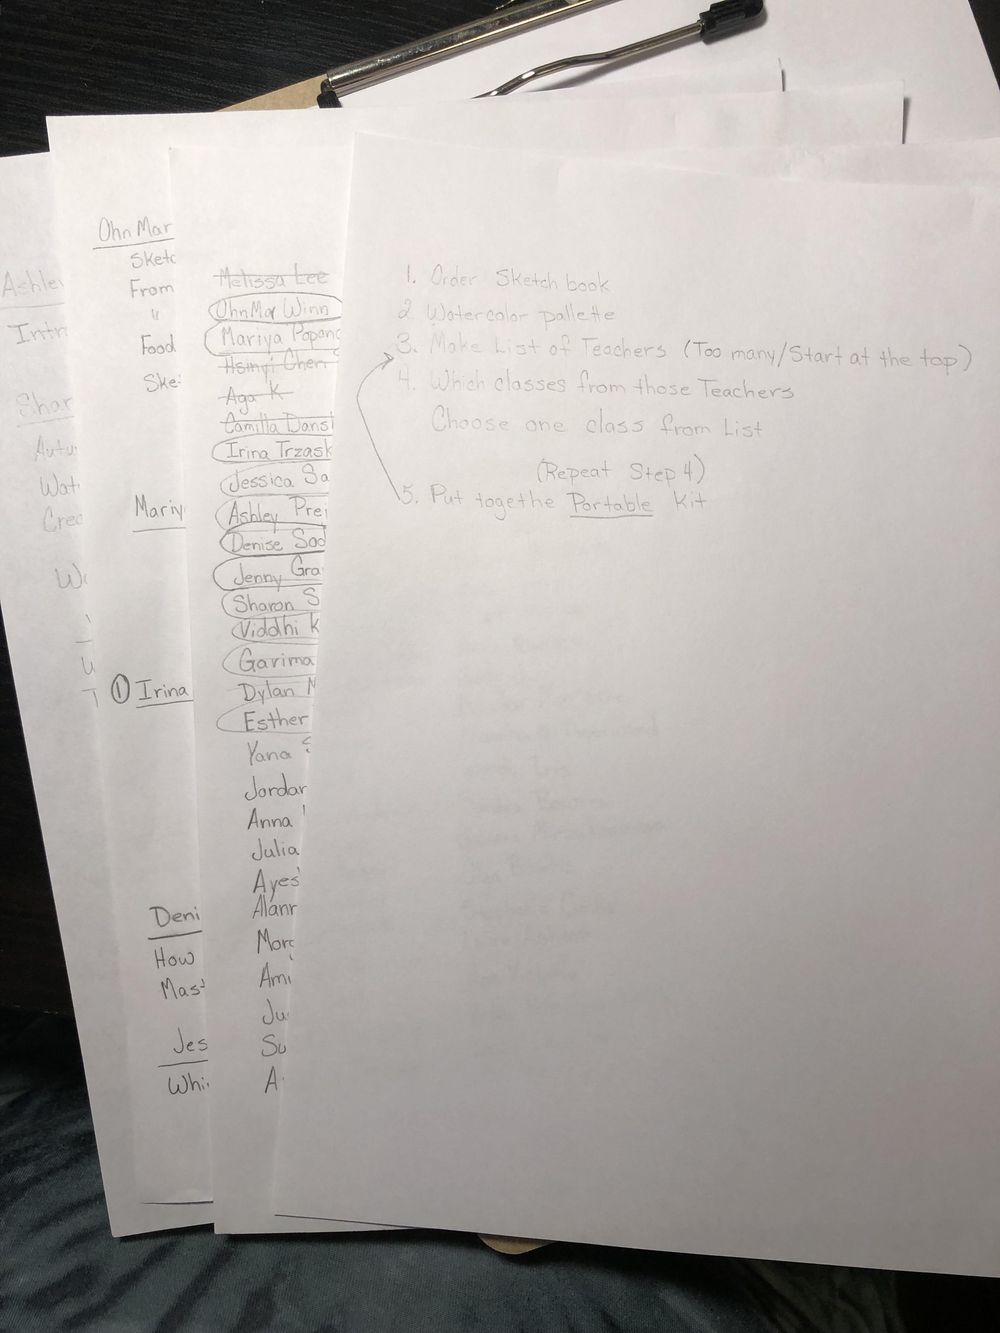 Ashley
Intr
Shar
Autu
Wat
Crea
OhnMar
Sketc
From
"
Food
Ske
Mariy
① Irina
Deni
How
Mas
Jes
Whi
Melissa Lee
OhnMar Winn
Mariya Popan
Hsinyi Chen
Aga K
Camilla Dansk
Irina Trzask
Jessica Sa
Ashley Prei
Denise Sod
Jenny Gra
Sharon S
Viddhi K
Garima
Dylan M
Esther
Yana S
Jordan
Anna
Julia
Ayes
Alann
Morg
Ami
Ju
Su
A
1. Order Sketch book
2 Watercolor pallette
3. Make List of Teachers (Too many/Start at the top)
4. Which classes from those Teachers
Choose one class from List
(Repeat Step 4)
5. Put togethe Portable Kit